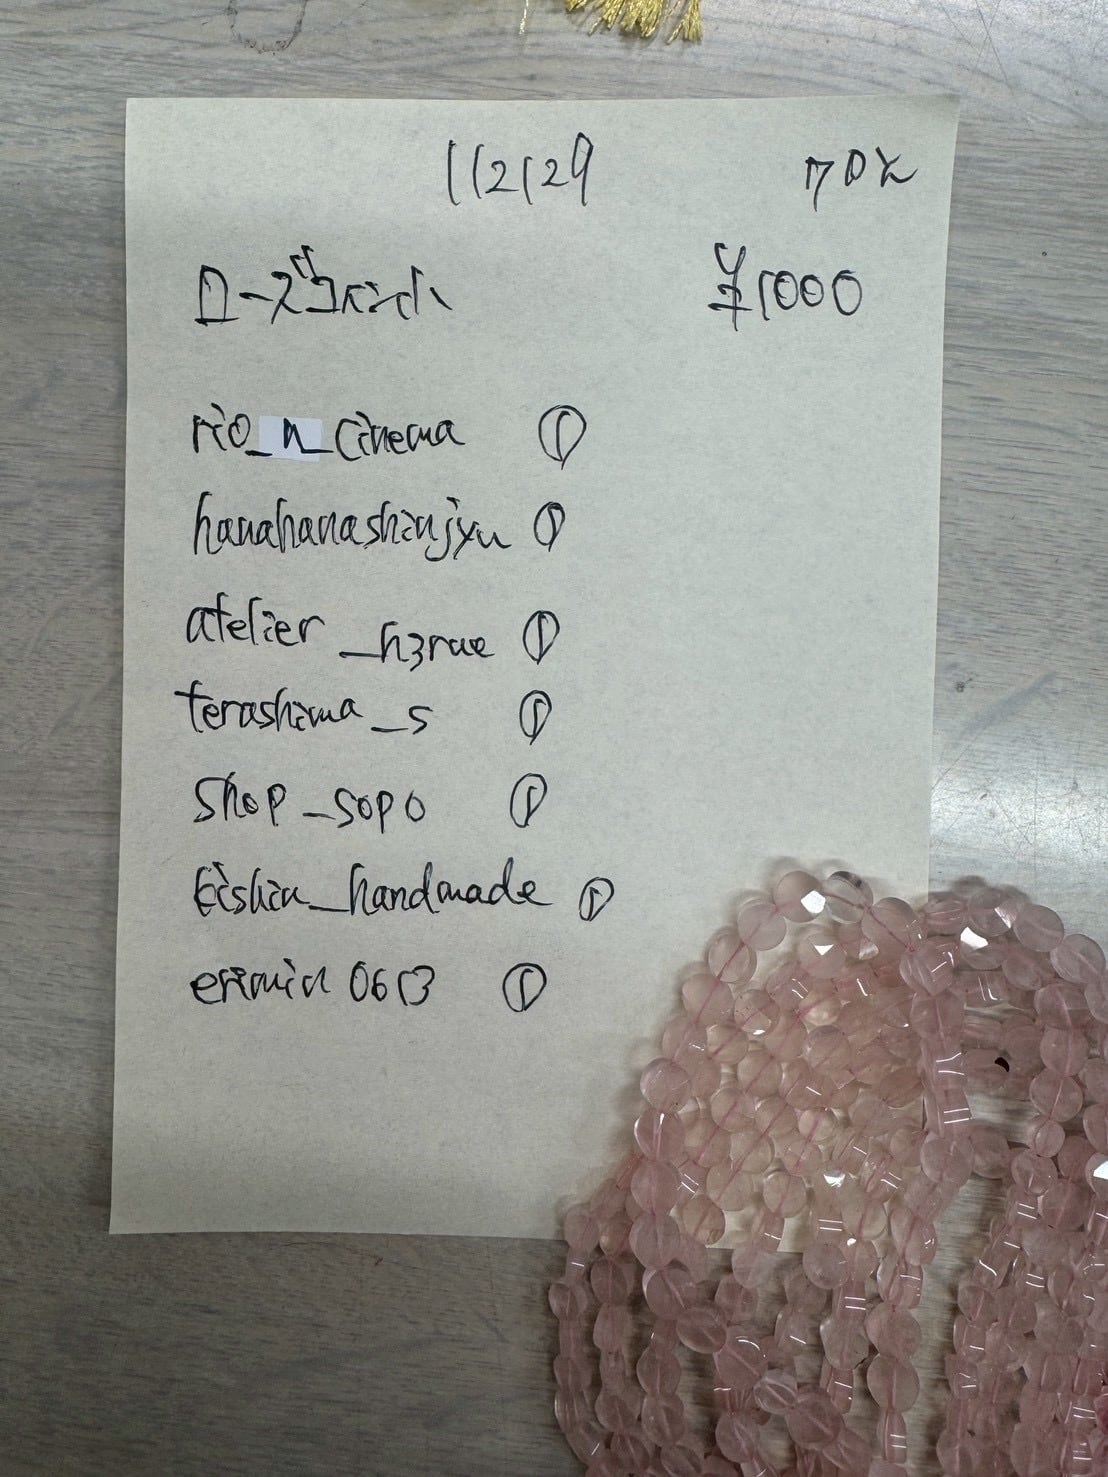 112129 70%
ローズコイン小 ¥1000
rio_n_cinema ①
hanahanashinjyu ①
atelier_h3rae ①
terashima_s ①
shop_sopo ①
kishin_handmade ①
erimin0613 ①